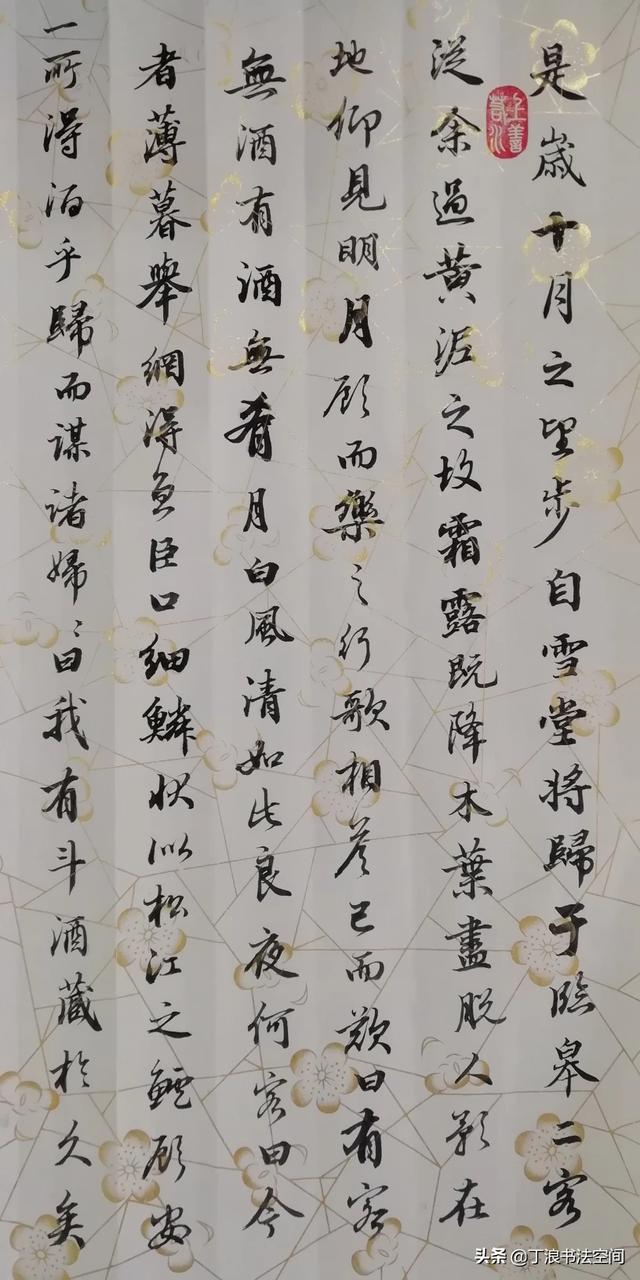 是歲十月之望步自雪堂將歸于臨皋二客
從余過黃泥之坂霜露既降木葉盡脫人影在
地仰見明月顧而樂之行歌相答已而歎曰有客
無酒有酒無肴月白風清如此良夜何客曰今
者薄暮舉網得魚巨口細鱗狀似松江之鱸顧安
一所得酒乎歸而謀諸婦〻曰我有斗酒藏於久矣
上善若水
头条@丁浪书法空间